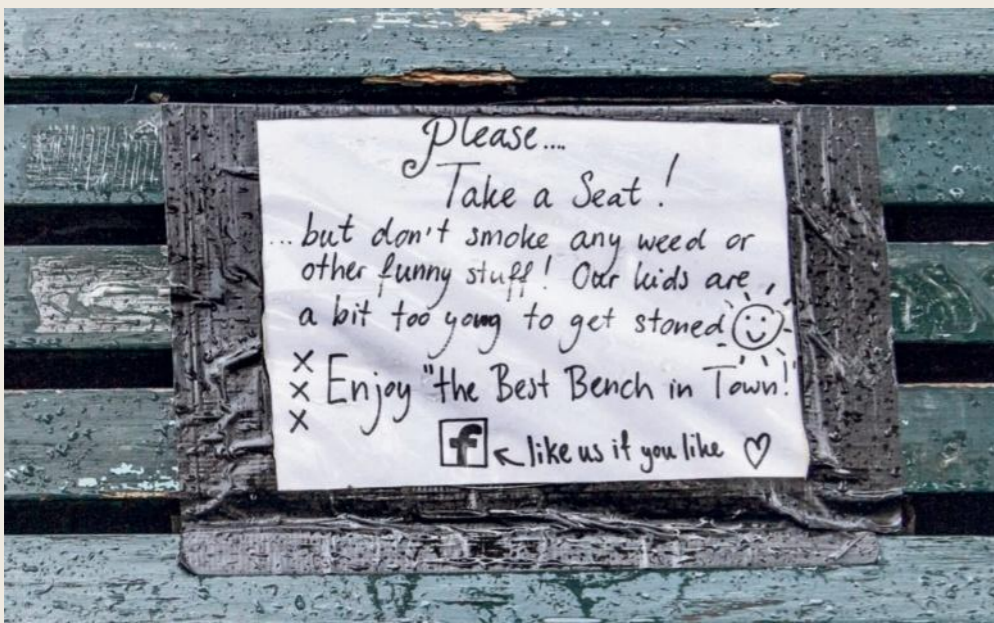 Please....
Take a Seat!
...but don't smoke any weed or
other funny stuff! Our kids are
a bit too yong to get stoned
X
X Enjoy "the Best Bench in Town!
X
f like us if you like